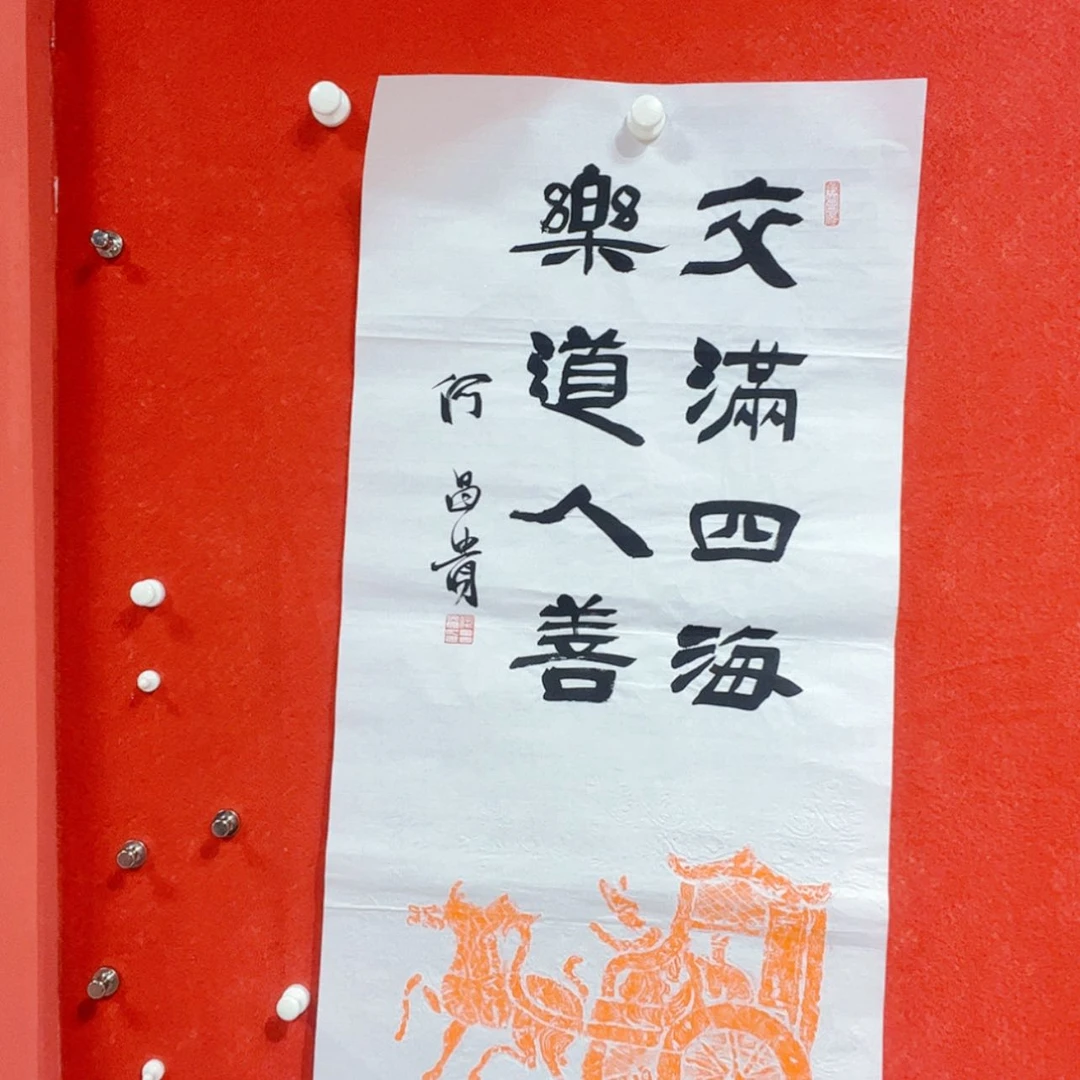 交滿四海
樂道人善
何昌貴